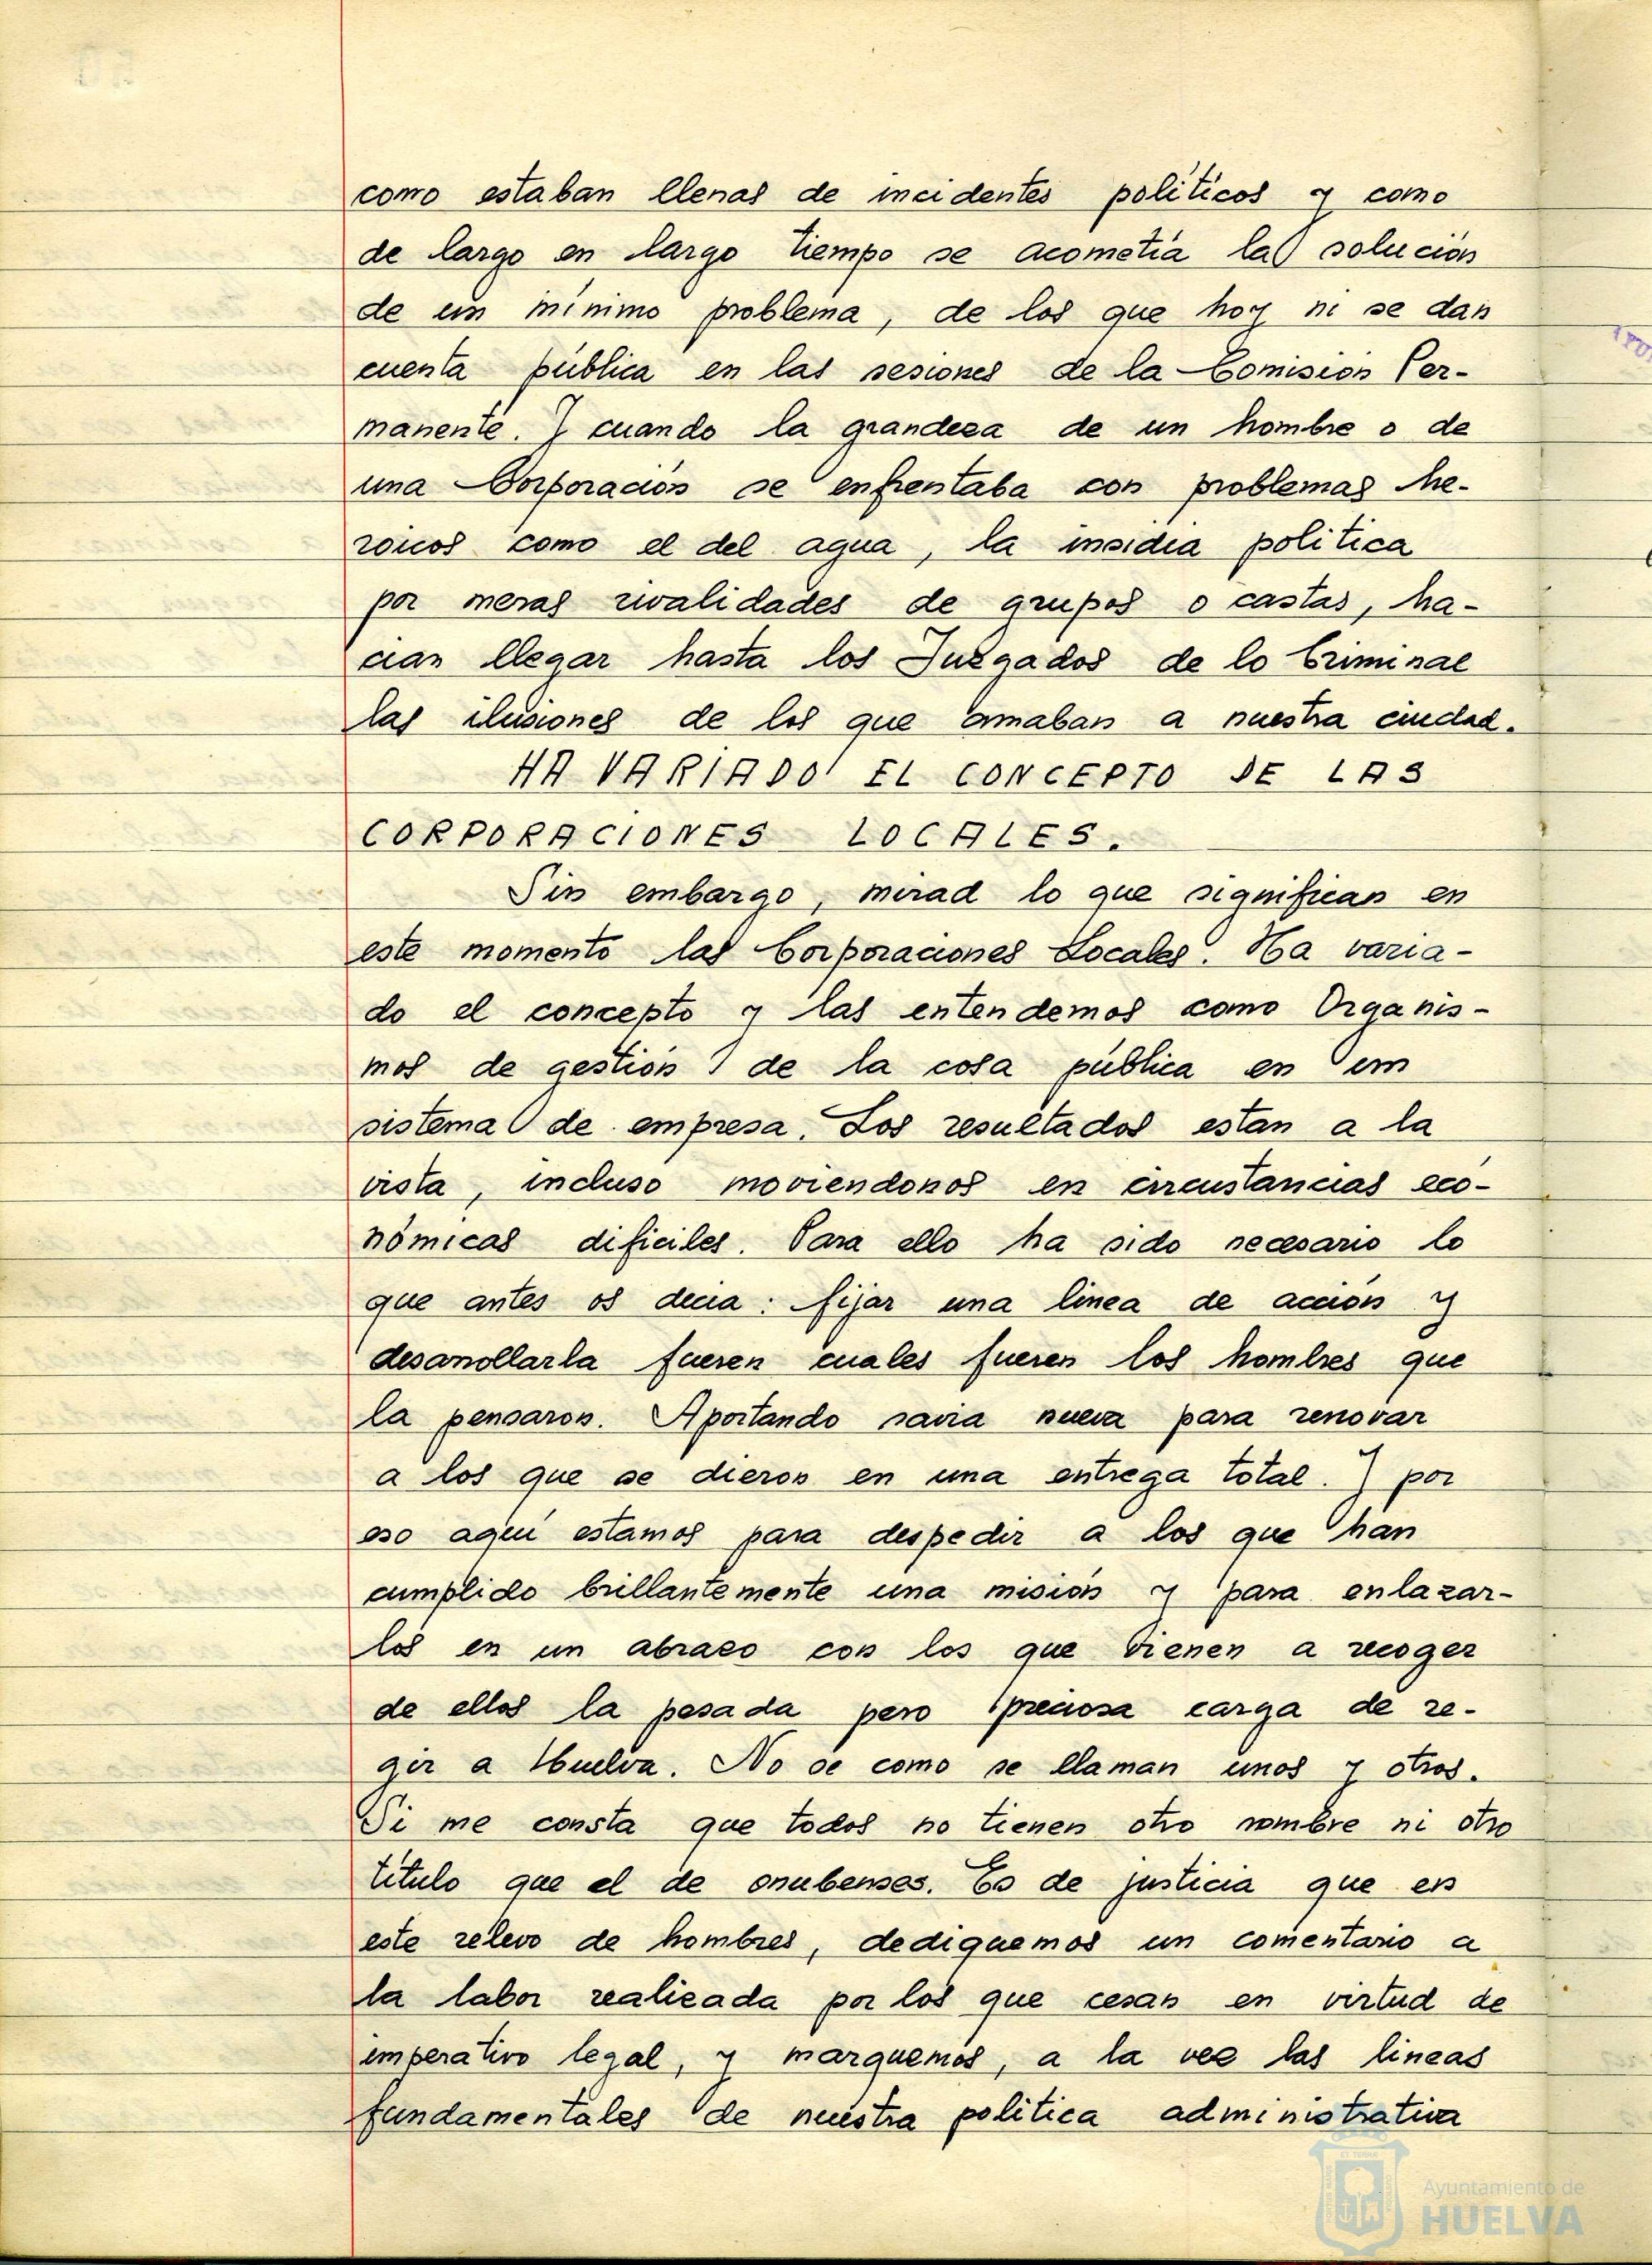 como estaban llenas de incidentes políticos y como
de largo en largo tiempo se acometía la solución
de un mínimo problema, de los que hoy ni se dan
cuenta pública en las sesiones de la Comisión Per-
manente. Y cuando la grandeza de un hombre o de
una Corporación se enfrentaba con problemas he-
roicos como el del agua, la insidia política
por meras rivalidades de grupos o castas, ha-
cian llegar hasta los Juzgados de lo Criminal
las ilusiones de los que amaban a nuestra ciudad.
HA VARIADO EL CONCEPTO DE LAS
CORPORACIONES LOCALES.
Sin embargo, mirad lo que significan en
este momento las Corporaciones Locales. Ha varia-
do el concepto y las entendemos como Organis-
mos de gestión de la cosa pública en un
sistema de empresa. Los resultados estan a la
vista, incluso moviendonos en circustancias eco-
nómicas dificiles. Para ello ha sido necesario lo
que antes os decia: fijar una linea de acción y
desarrollarla fueren cuales fueren los hombres que
la pensaron. Aportando savia nueva para renovar
a los que se dieron en una entrega total. Y por
eso aquí estamos para despedir a los que han
cumplido brillantemente una misión y para enlazar-
los en un abrazo con los que vienen a recoger
de ellos la pesada pero preciosa carga de re-
gir a Huelva. No se como se llaman unos y otros.
Si me consta que todos no tienen otro nombre ni otro
título que el de onubenses. Es de justicia que en
este relevo de hombres, dediquemos un comentario a
la labor realizada por los que cesan en virtud de
imperativo legal, y marquemos, a la vez las lineas
fundamentales de nuestra politica administrativa
Ayuntamiento de
HUELVA